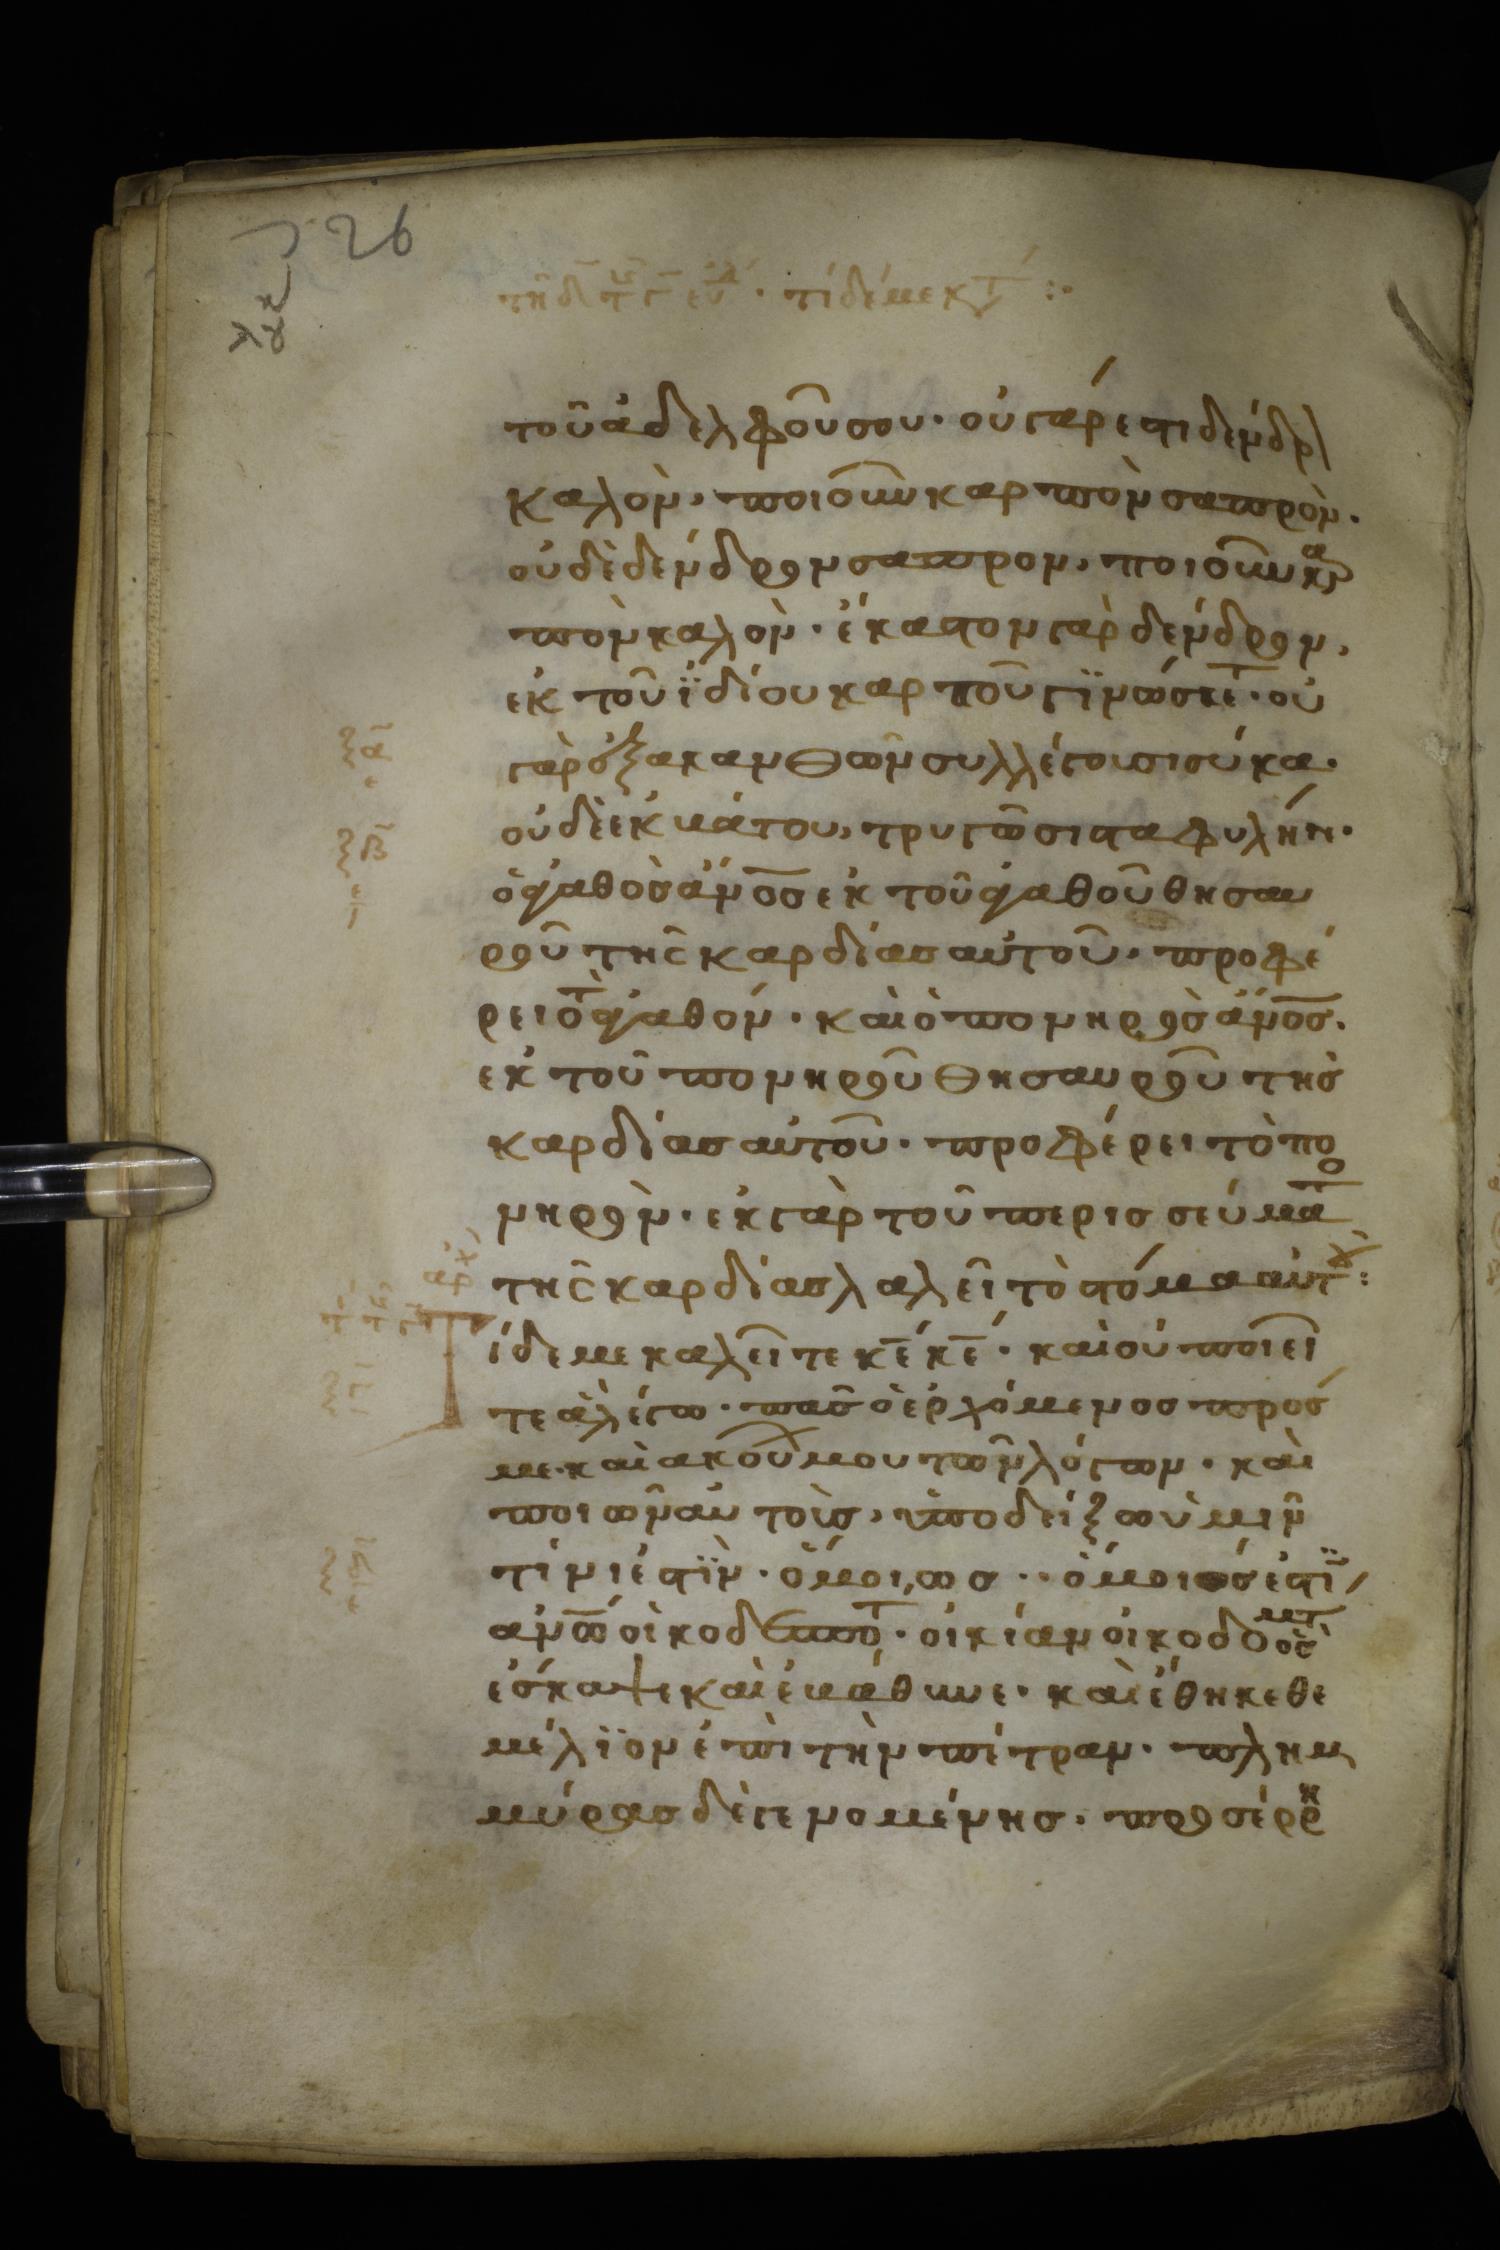 26
λουκ
τοῦ ἀδελφοῦ σου· οὐ γάρ ἐστι δένδρ
καλὸν, ποιοῦν καρπὸν σαπρὸν·
οὐδὲ δένδρον σαπρον, ποιοῦν καρ
πὸν καλὸν· ἕκαστον γὰρ δένδρον,
ἐκ τοῦ ϊδίου καρποῦ γϊνώσκετ· οὐ
γὰρ ἐξ ακανθῶν συλλέγουσι σύκα·
οὐδὲ ἐκ βάτου, τρυγῶσι σταφυλήν·
ὁ ἀγαθὸσ ἄνοσ ἐκ τοῦ ἀγαθοῦ θησαυ
ροῦ τῆς καρδίασ αὐτοῦ· προφέ
ρει τὸ ἀγαθόν· καὶ ὁ πονηρὸσ ἄνοσ·
ἐκ τοῦ πονηροῦ θησαυροῦ τῆσ
καρδίασ αὐτοῦ· προφέρει τὸ πο
νηρὸν· ἐκ γὰρ τοῦ περισσεύματο
τῆς καρδίασ λαλεῖ τὸ στόμα αὐτου:
αρχ
Τί δε με καλεῖτε κ̅ε̅ κ̅ε̅· καὶ οὐ ποιεῖ
τε ἃ λέγω· πᾶσ ὁ ἐρχόμενοσ πρόσ
με· καὶ ακούων μου τῶν λόγων· καὶ
ποιῶν αὐτοὺσ, ὑποδείξω ὑμῖν
τίνι ἐστϊν ὅμοιωσ·· ὅμοιόσ ἐστϊ
ανω οἰκοδεσποτ· οἰκίαν οἰκοδομτ ὃς
ἔσκαψε καὶ ἐβάθυνε· καὶ ἔθηκε θε
μέλϊον ἐπὶ τὴν πέτραν· πλημ
μύρασ δὲ γενομένησ· προσέρρη